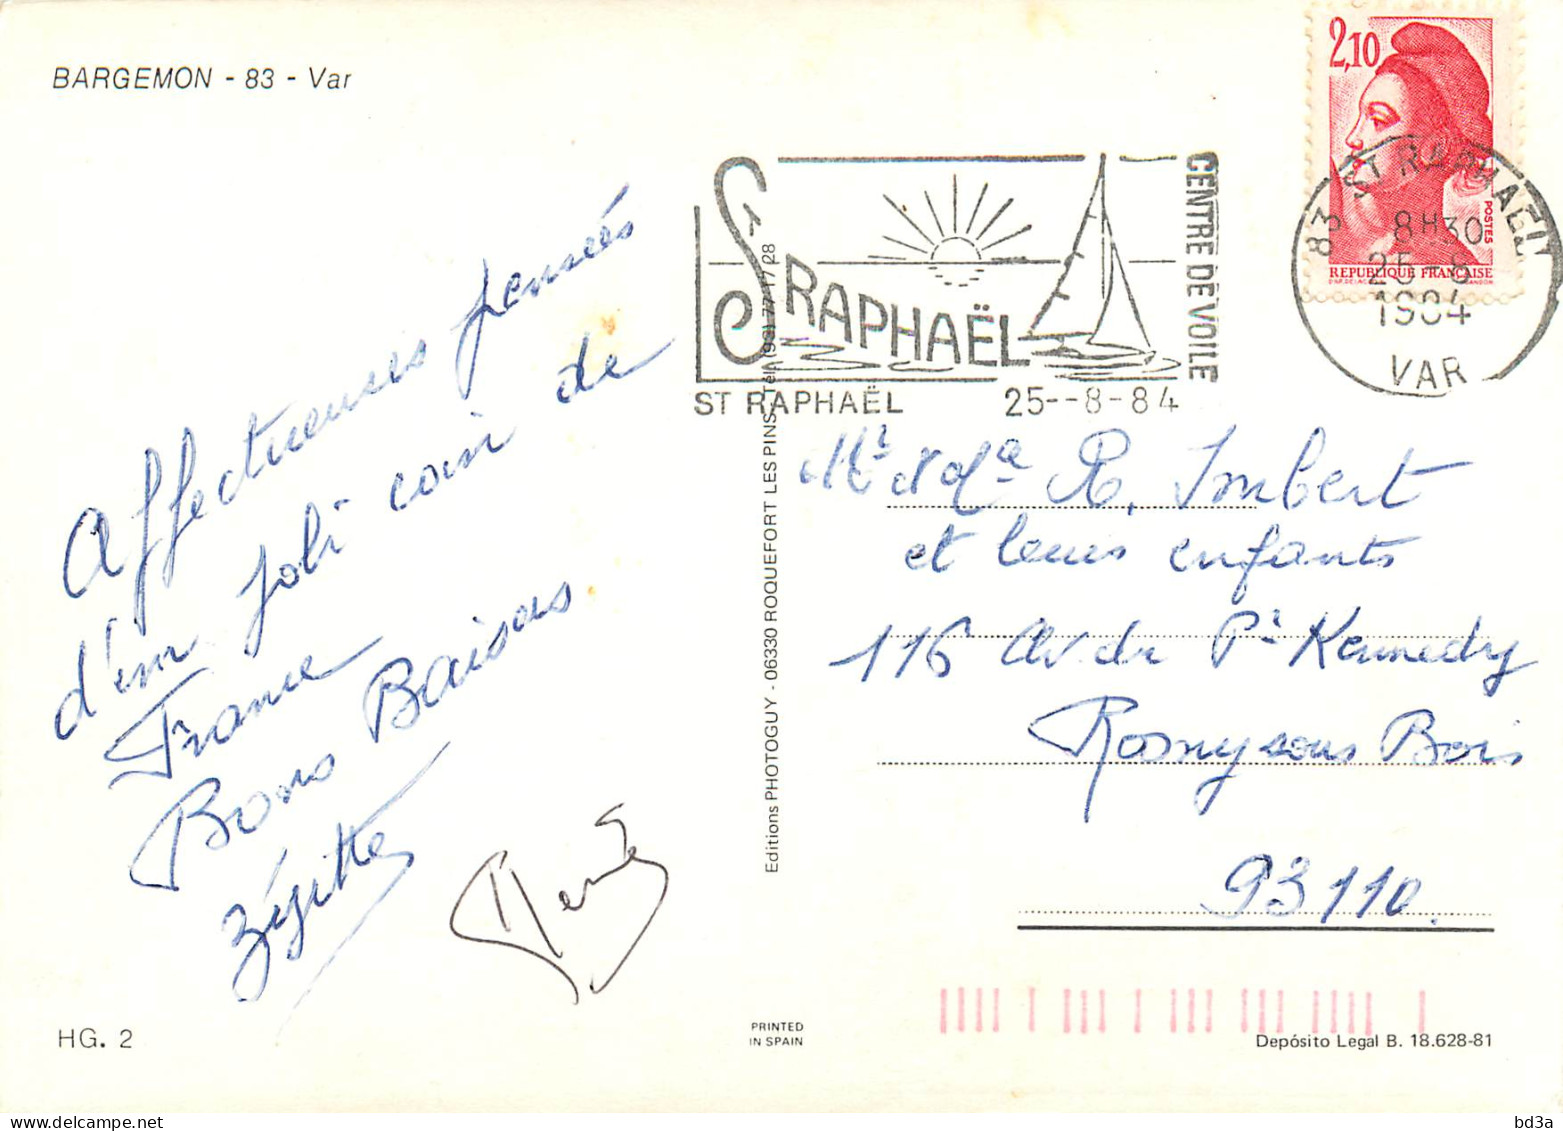 BARGEMON - 83 - Var
2,10
POSTES
REPUBLIQUE FRANÇAISE
83 ST RAPHAEL
8H30
25 -8
1984
VAR
ST RAPHAËL
CENTRE DE VOILE
ST RAPHAËL 25--8-84
Affectueuses pensées
d'un joli coin de
France
Bons Baisers
Zézitte
Editions PHOTOGUY - 06330 ROQUEFORT LES PINS - Tél. (93) 77 17 28
Mr & Me R. Imbert
et leurs enfants
116 Av du Pt Kennedy
Rosny sous Bois
93110.
HG. 2
PRINTED
IN SPAIN
Depósito Legal B. 18.628-81
bd3a